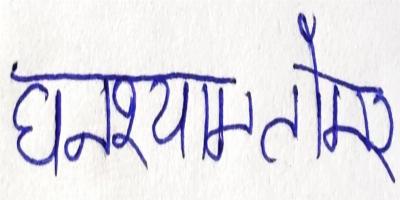 घनश्याम तोमर